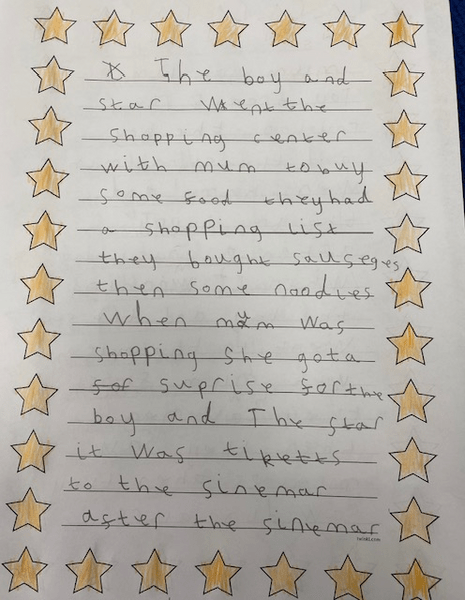 The boy and
star went the
shopping center
with mum to buy
some food they had
a shopping list
they bought sauseges
then some noodles
when mum was
shopping she got a
for suprise for the
boy and The star
it was tiketts
to the sinemar
after the sinemar